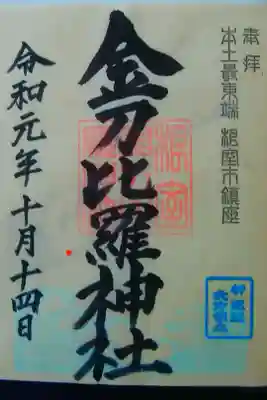 奉拝
本土最東端 根室市鎮座
金刀比羅神社
令和元年十月十四日